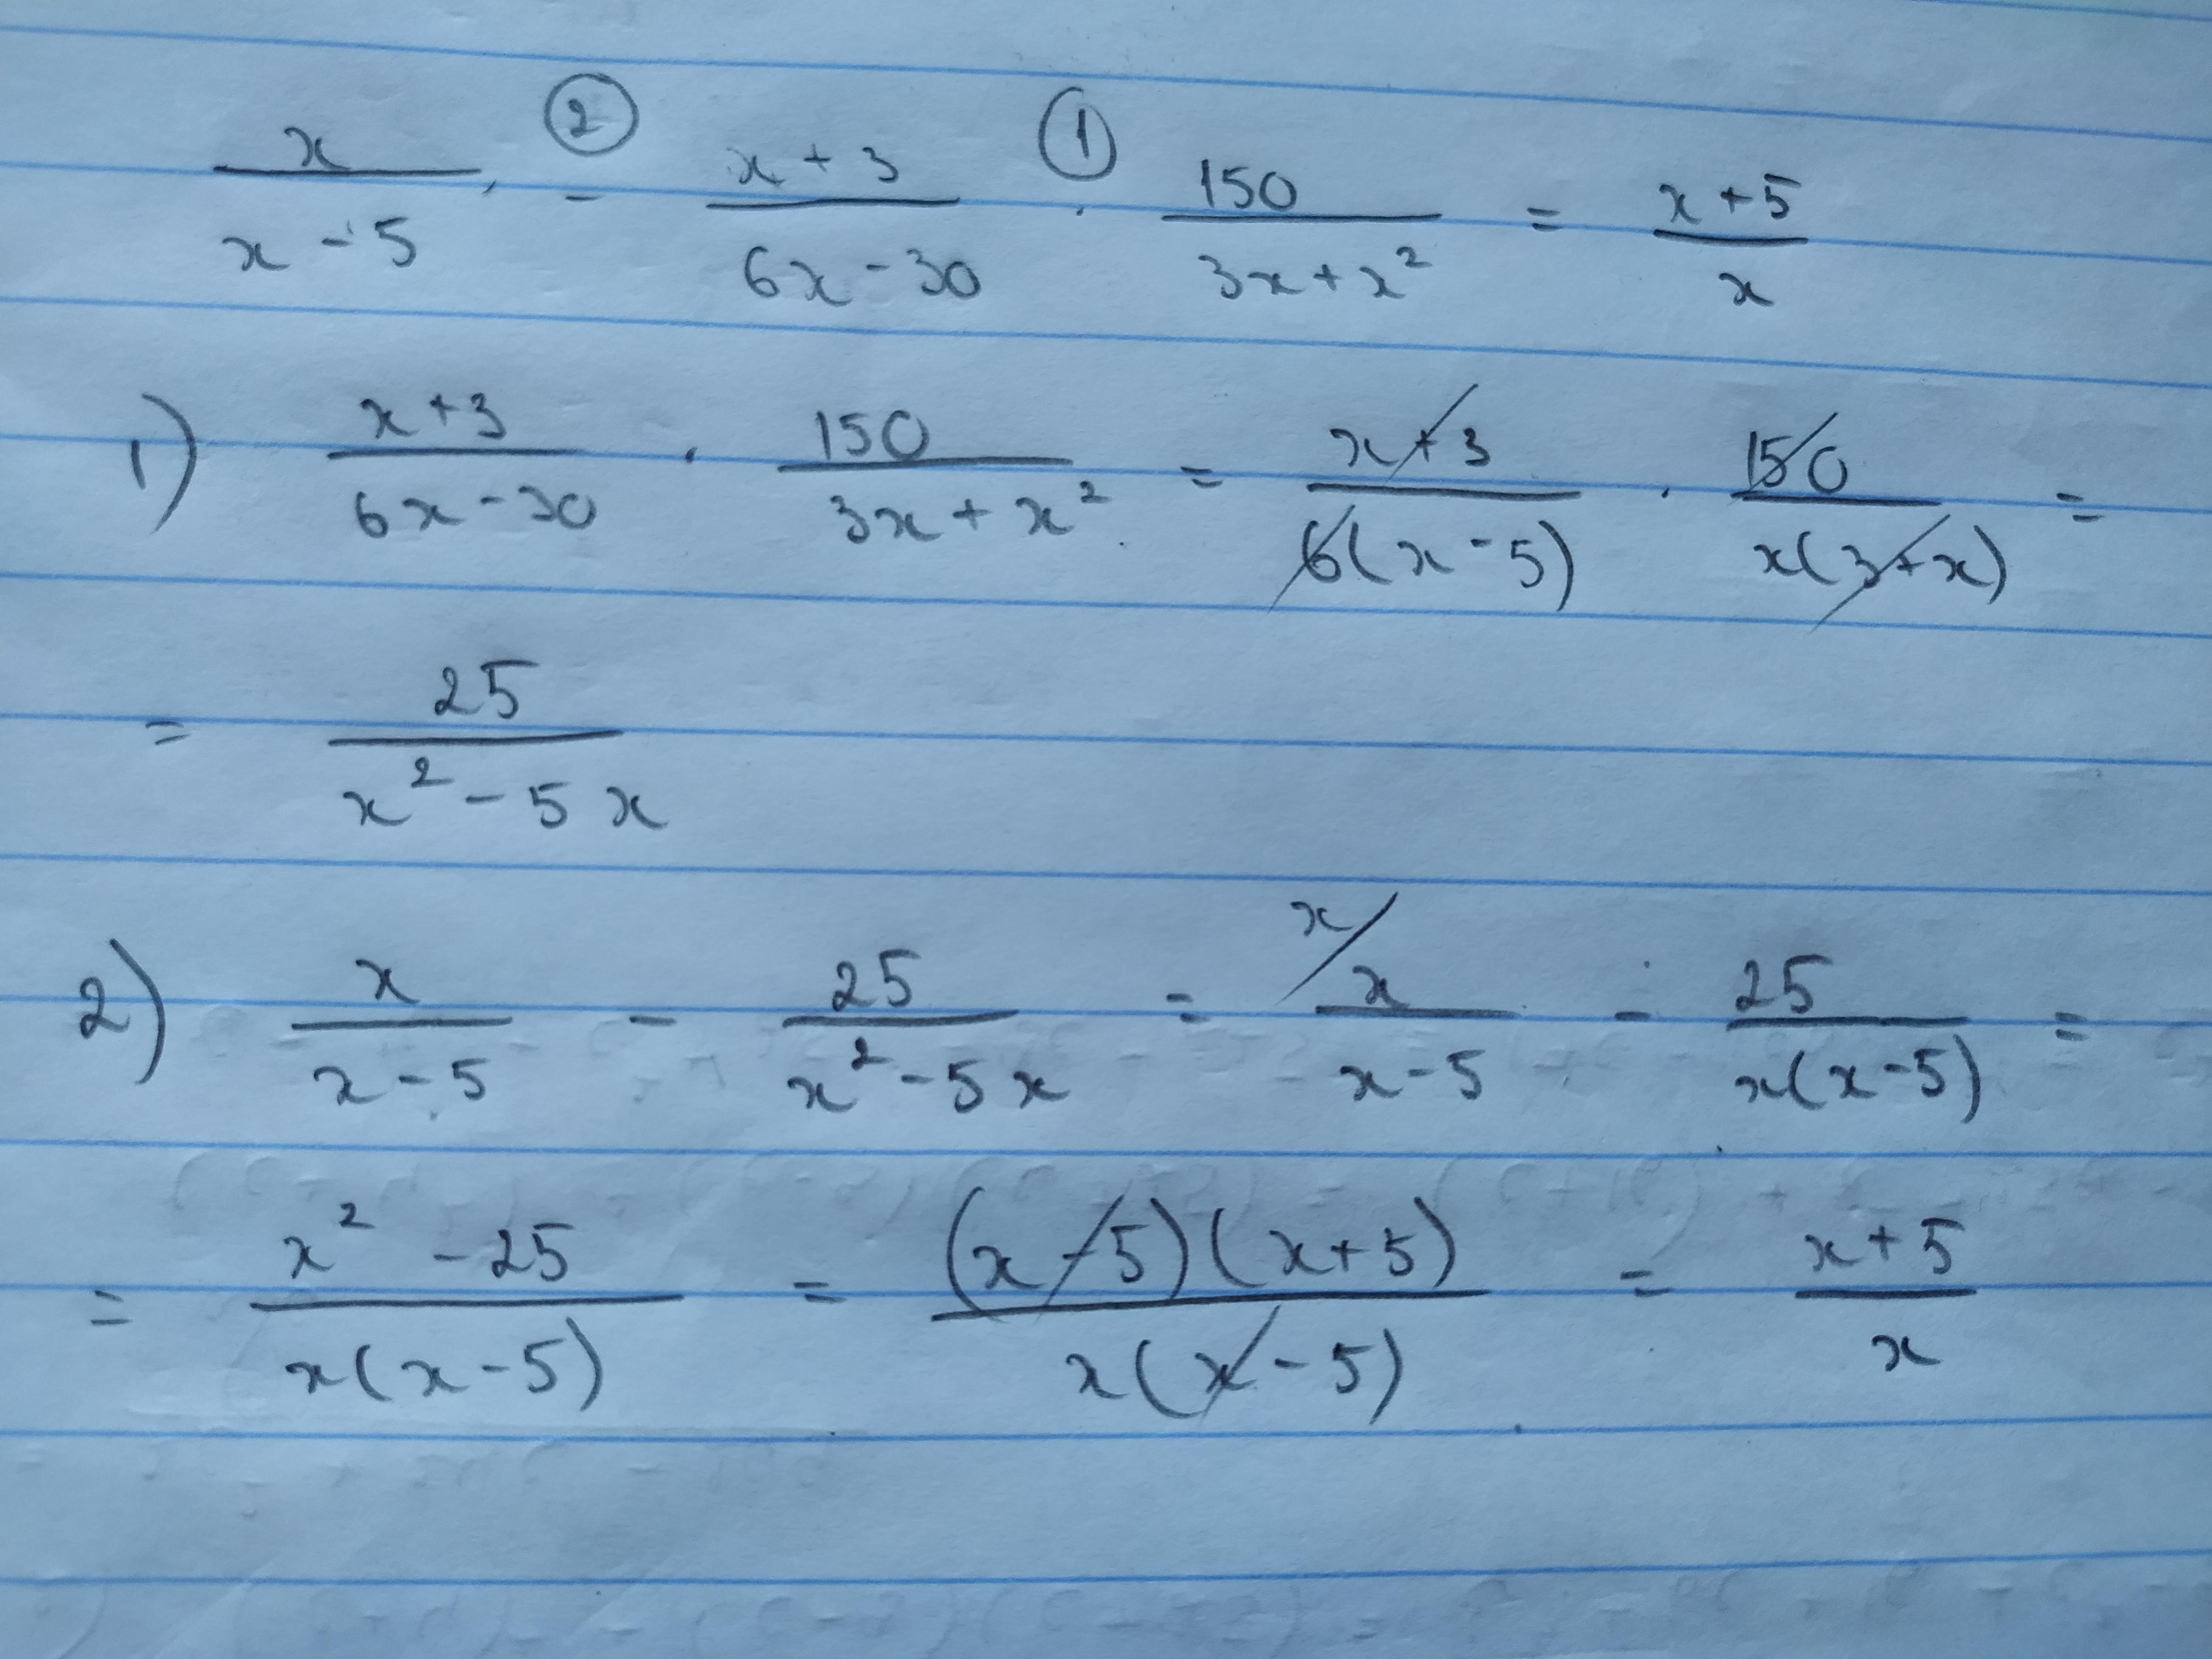 x/(x-5) ② - (x+3)/(6x-30) ① · 150/(3x+x²) = (x+5)/x
1) (x+3)/(6x-30) · 150/(3x+x²) = (x+3)/(6(x-5)) · 150/(x(3+x)) =
= 25/(x²-5x)
2) x/(x-5) - 25/(x²-5x) = x/ x/(x-5) - 25/(x(x-5)) =
= (x²-25)/(x(x-5)) = ((x-5)(x+5))/(x(x-5)) = (x+5)/x